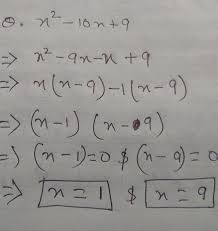 Q. x² - 10x + 9
=> x² - 9x - x + 9
=> x(x - 9) - 1(x - 9)
=> (x - 1) (x - 9)
=) (x - 1) = 0 $ (x - 9) = 0
=> x = 1 $ x = 9